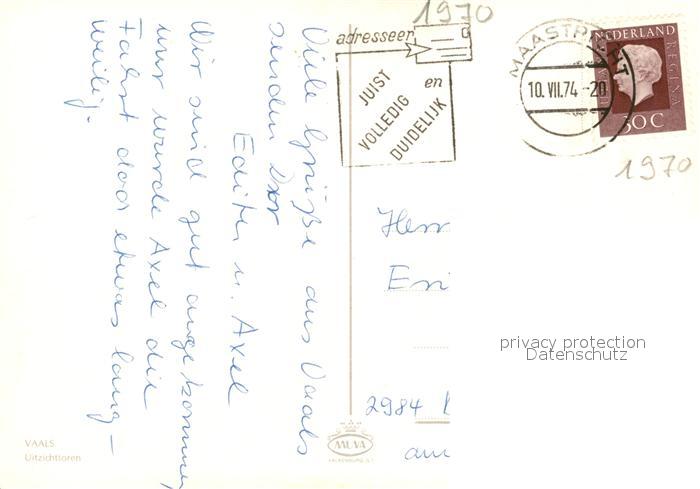 1970
adresseer
JUIST
VOLLEDIG
en
DUIDELIJK
MAASTRICHT
10.VII.74-20
NEDERLAND
REGINA
JULIANA
30C
1970
Viele Grüße aus Vaals
senden Dir
Edith u. Axel
Wir sind gut angekommen,
nur wurde Axel die
Fahrt doch etwas lang-
weilig.
Herr
Eri
privacy protection
Datenschutz
2984
am
VAALS
Uitzichttoren
MUVA
VALKENBURG